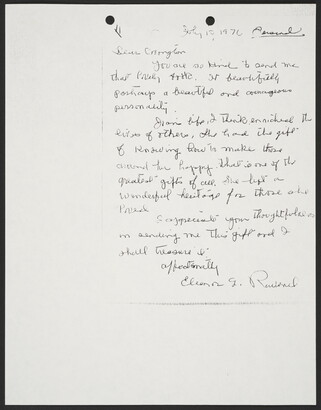 July 10, 1972 Personal
Dear Carrington
You are so kind to send me
that lovely book. It beautifully
portrays a beautiful and courageous
personality.
life, I think, enriched the
lives of others, She had the gift
of knowing how to make those
around her happy. That is one of the
greatest gifts of all. She left a
wonderful heritage for those who
loved.
I appreciate your thoughtfulness
in sending me this gift and I
shall treasure it
affectionately
Eleanor G.